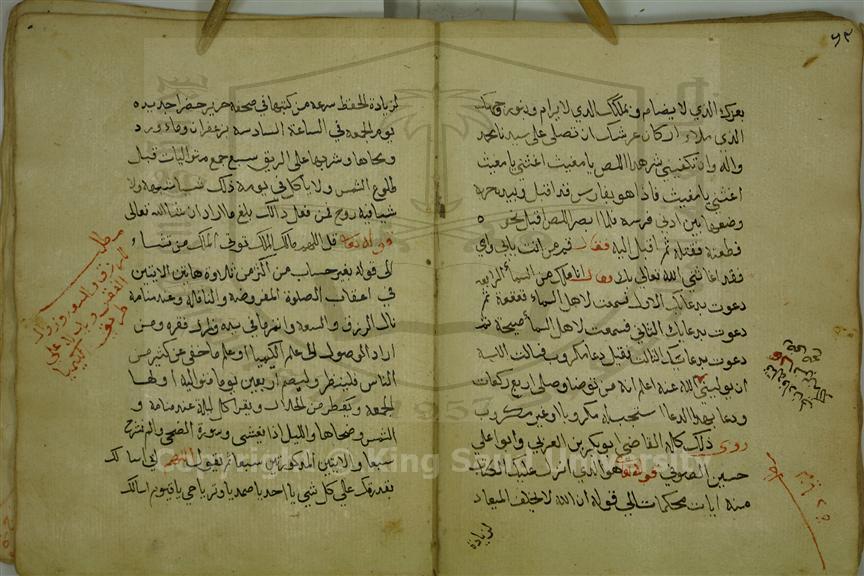 ٩٢
بعزك الذي لا يضام وبملكك الذي لا يرام وبنور وجهك
الذي ملاء اركان عرشك ان تصلي على سيدنا محمد
واله وان تكفيني شر هذا اللص يا مغيث اغثني يا مغيث
اغثني يا مغيث فاذا هو بفارس قد اقبل وبيده حربة
وضعها بين اذني فرسه فلما ابصر اللص اقبل نحوه
فطعنه فقتله ثم اقبل اليه فقال قم من انت بابي وامي
فقد اغاثني الله تعالى بك فقال انا ملك من السماء الرابعة
دعوت بدعائك الاول فسمعت لاهل السماء قعقعة ثم
دعوت بدعائك الثاني فسمعت لاهل السماء صيحة ثم
دعوت بدعائك الثالث فقيل دعا مكروب فسالت الله
ان يوليني الله عنه اعلم انه من توضا وصلى اربع ركعات
ودعا بهذا الدعا استجيب له مكروبا او غير مكروب
روى ذلك كله القاضي ابو بكر بن العربي وابو علي
حسين الصوفي قوله تعالى هو الذي انزل عليك الكتاب
منه ايات محكمات الى قوله ان الله لا يخلف الميعاد
لزيادة
لزيادة الحفظ سرعه من كتبها في صحفه حرير خضرا جديده
يوم الجمعه في الساعة السادسة بزعفران وماء ورد
ومحاها وشربها على الريق سبع جمع متواليات قبل
طلوع الشمس ولا ياكل في يومه ذلك شيا شبهه ولا
شيا فيه روح فمن فعل ذلك بلغ ما اراد ان شا الله تعالى
قوله تعا قل اللهم مالك الملك توتي الملك من تشاء
الى قوله بغير حساب من اكثر من تلاوة هاتين الايتين
في اعقاب الصلوة المفروضه والنافله وعند منامه
نال الرزق والسعة وانفرما في يده وطرد فقره ومن
اراد الوصول الى علم الكيميا او علم ما خفي عن كثير من
الناس فلينظر وليصم اربعين يوما متوالية اولها
الجمعه ويفطر من الحلال ويقرا كل ليلة عند منامه و
الشمس وضحاها والليل اذا يغشى وسورة الضحى والم نشرح
سبعا والايتين المذكورتين سبعا ثم يقول اللهم اني اسالك
بقدرتك على كل شي يا احد يا صمد يا وتر يا حي يا قيوم اسالك
مطلب